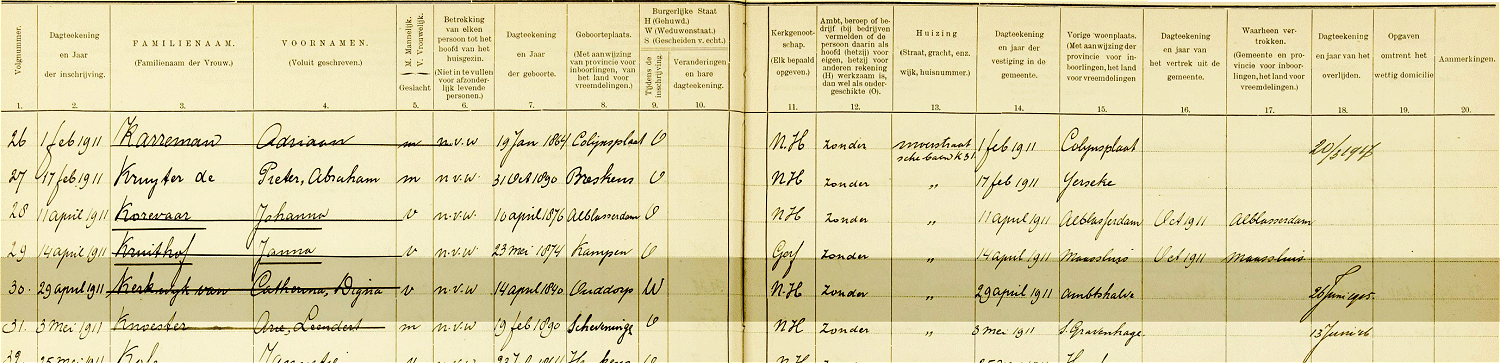 Volgnummer.
Dagteekening en Jaar der inschrijving.
FAMILIENAAM. (Familienaam der Vrouw.)
VOORNAMEN. (Voluit geschreven.)
M. Mannelijk. V. Vrouwelijk. Geslacht
Betrekking van elken persoon tot het hoofd van het huisgezin. (Niet in te vullen voor afzonderlijk levende personen.)
Dagteekening en Jaar der geboorte.
Geboorteplaats. (Met aanwijzing van provincie voor inboorlingen, van het land voor vreemdelingen.)
Burgerlijke Staat H (Gehuwd.) W (Weduwenstaat.) S (Gescheiden v. echt.)
Tijdens de inschrijving
Veranderingen en hare dagteekening.
Kerkgenootschap. (Elk bepaald opgeven.)
Ambt, beroep of bedrijf (bij bedrijven vermelden of de persoon daarin als hoofd (hetzij) voor eigen, hetzij voor anderen rekening (H) werkzaam is, dan wel als ondergeschikte (O).
Huizing (Straat, gracht, enz. wijk, huisnummer.)
Dagteekening en jaar der vestiging in de gemeente.
Vorige woonplaats. (Met aanwijzing der provincie voor inboorlingen, het land voor vreemdelingen
Dagteekening en jaar van het vertrek uit de gemeente.
Waarheen vertrokken. (Gemeente en provincie voor inboorlingen, het land voor vreemdelingen.)
Dagteekening en jaar van het overlijden.
Opgaven omtrent het wettig domicilie
Aanmerkingen.
1. 2. 3. 4. 5. 6. 7. 8. 9. 10. 11. 12. 13. 14. 15. 16. 17. 18. 19. 20.
26 1 feb 1911 Karreman Adriaan m n.v.w 19 Jan 1864 Colijnsplaat O N.H zonder 1 feb 1911 Colijnsplaat 20/3 1947
27 17 feb 1911 Kruyter de Pieter, Abraham m n.v.w. 31 Oct 1890 Breskens O N.H zonder „ 17 feb 1911 Yerseke
28 11 april 1911 Korevaar Johanna v n.v.w. 10 april 1876 Alblasserdam O N.H zonder „ 11 april 1911 Alblasserdam Oct 1911 Alblasserdam
29 14 april 1911 Kruithof Janna v n.v.w. 23 mei 1874 Kampen O Geref zonder „ 14 april 1911 Maassluis Oct 1911 Maassluis
30. 29 april 1911 Kerkwijk van Catharina, Digna v n.v.w. 14 april 1840 Ouddorp W N.H zonder „ 29 april 1911 26 Juni 1925.
31. 3 mei 1911 Knoester Arie, Leendert m n.v.w 19 feb 1890 Scheveninge O N H zonder „ 3 mei 1911 S. Gravenhage 13 Juni 26
32.